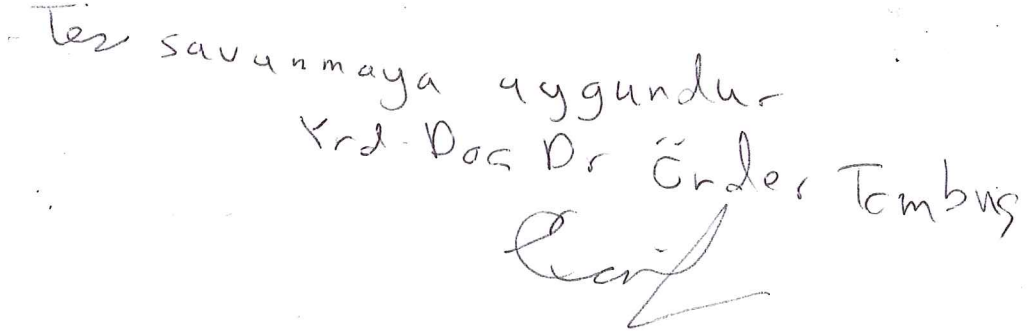 Tez savunmaya uygundur
Yrd. Doç Dr Önder Tombuş